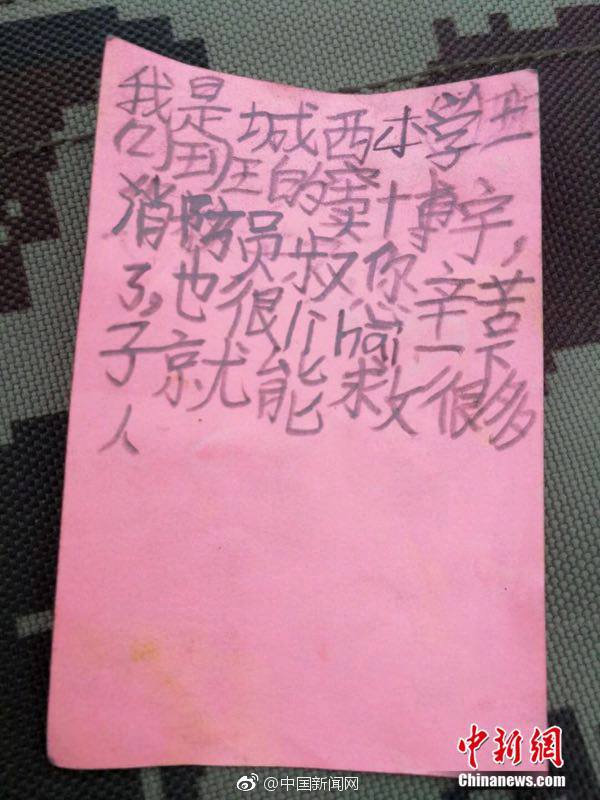 我是城西小学一
班的窦博宇,
消防员叔你辛苦
了,也很厉hai一下
子就能救很多
人
中新网
Chinanews.com
@中国新闻网